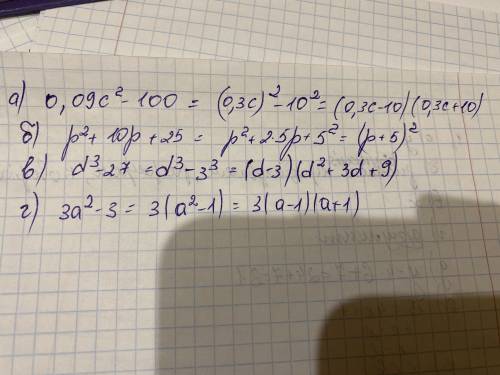 а) 0,09c² - 100 = (0,3c)² - 10² = (0,3c - 10)(0,3c + 10)
б) p² + 10p + 25 = p² + 2·5p + 5² = (p + 5)²
в) d³ - 27 = d³ - 3³ = (d - 3)(d² + 3d + 9)
г) 3a² - 3 = 3(a² - 1) = 3(a - 1)(a + 1)